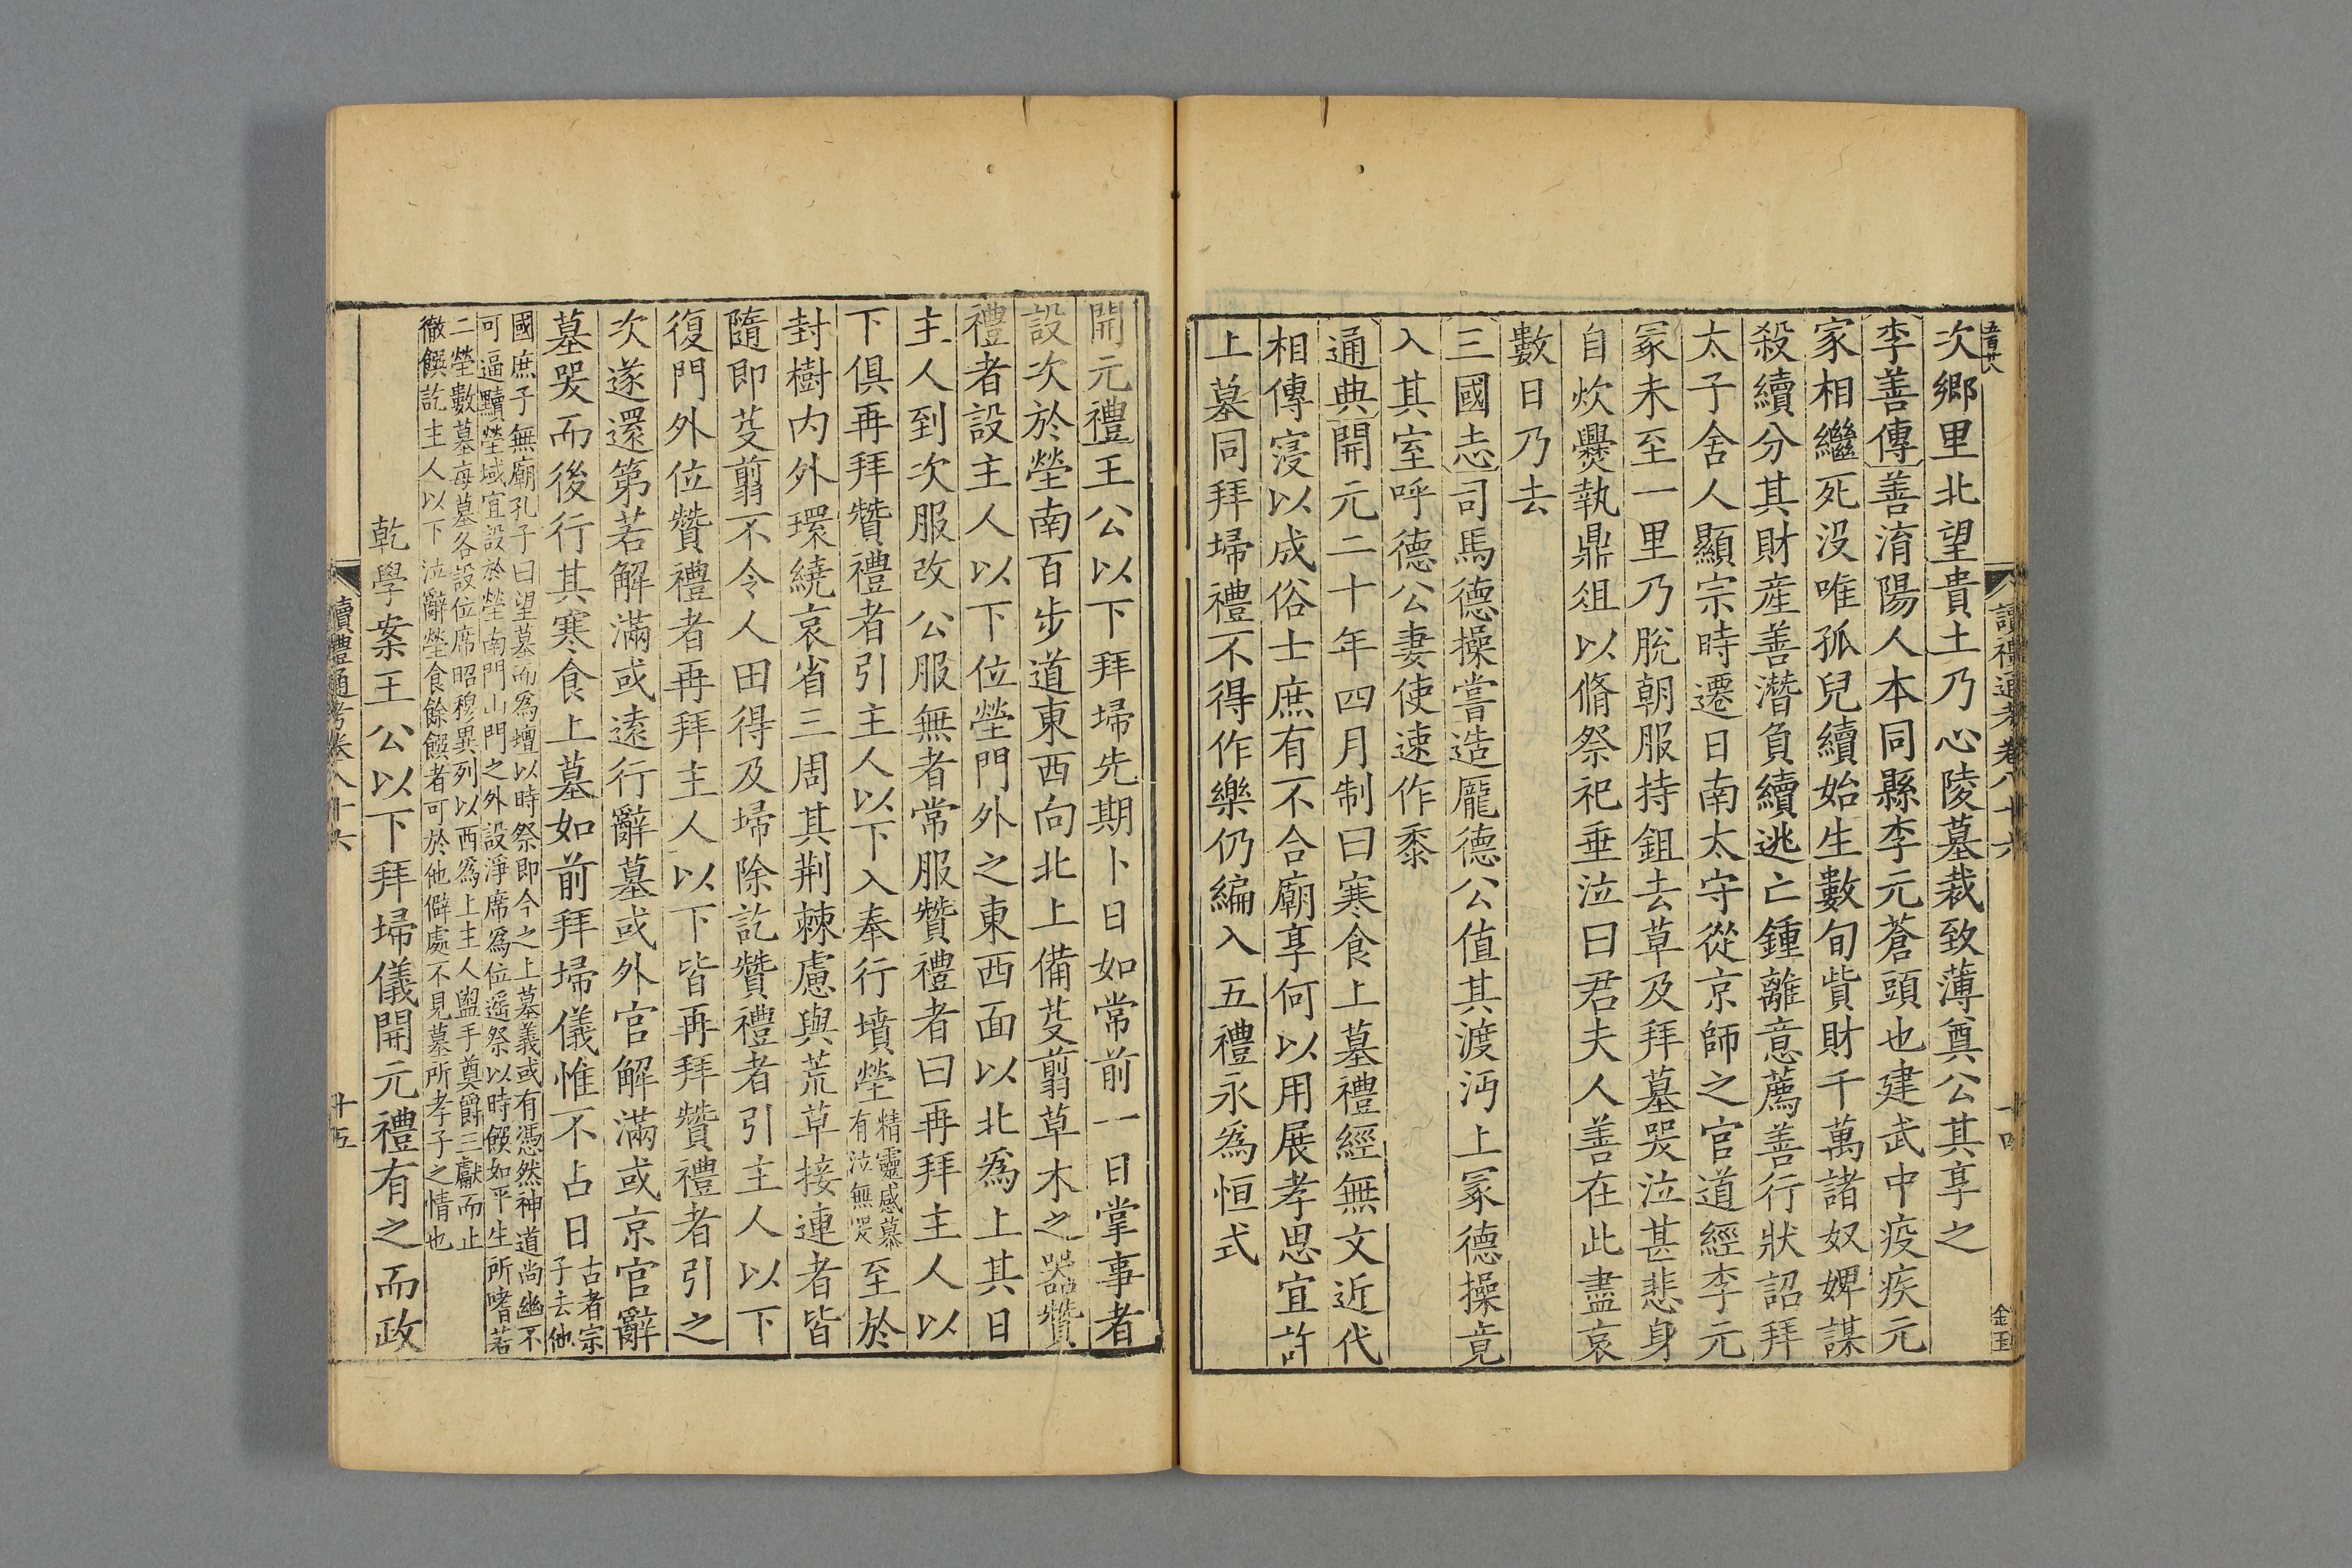 次鄉里北望貴土乃心陵墓裁致薄奠公其享之
李善傳善淯陽人本同縣李元蒼頭也建武中疫疾元
家相繼死没唯孤兒續始生數旬貲財千萬諸奴婢謀
殺續分其財産善潛負續逃亡鍾離意薦善行狀詔拜
太子舍人顯宗時遷日南太守從京師之官道經李元
冢未至一里乃脫朝服持鉏去草及拜墓哭泣甚悲身
自炊爨執鼎俎以脩祭祀垂泣曰君夫人善在此盡哀
數日乃去
三國志司馬德操嘗造龐德公值其渡沔上冢德操竟
入其室呼德公妻使速作黍
通典開元二十年四月制曰寒食上墓禮經無文近代
相傳寖以成俗士庶有不合廟享何以用展孝思宜許
上墓同拜埽禮不得作樂仍編入五禮永爲恒式
讀禮通考卷八十六
十四
金玉
開元禮王公以下拜埽先期卜日如常前一日掌事者
設次於塋南百步道東西向北上備芟翦草木之器贊
禮者設主人以下位塋門外之東西面以北爲上其日
主人到次服改公服無者常服贊禮者曰再拜主人以
下俱再拜贊禮者引主人以下入奉行墳塋精靈感慕有泣無哭至於
封樹内外環繞哀省三周其荆棘慮與荒草接連者皆
隨即芟翦不令人田得及埽除訖贊禮者引主人以下
復門外位贊禮者再拜主人以下皆再拜贊禮者引之
次遂還第若解滿或逺行辭墓或外官解滿或京官辭
墓哭而後行其寒食上墓如前拜埽儀惟不占日古者宗子去他
國庶子無廟孔子曰望墓而爲壇以時祭即今之上墓義或有憑然神道尚幽不
可逼黷塋域宜設於塋南門山門之外設淨席爲位遥祭以時饌如平生所嗜若
二塋數墓每墓各設位席昭穆異列以西爲上主人盥手奠爵三獻而止
徹饌訖主人以下泣辭塋食餘饌者可於他僻處不見墓所孝子之情也
乾學案王公以下拜埽儀開元禮有之而政
讀禮通考卷八十六
十五